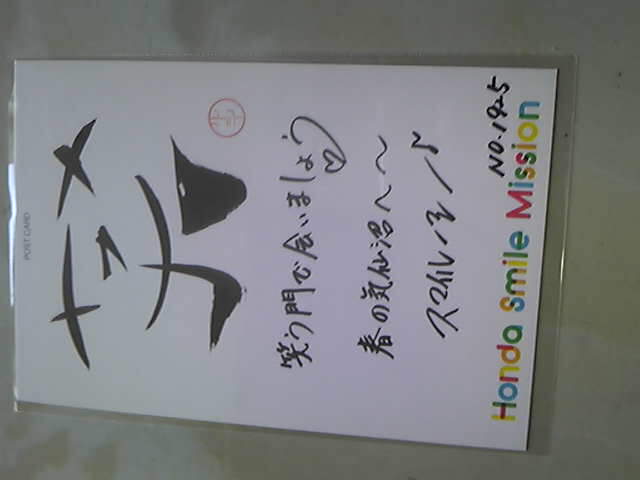 POST CARD
笑
笑う門で会いましょう♡
春の気仙沼へ〜
スマイルーミー♪
NO.1925
Honda Smile Mission